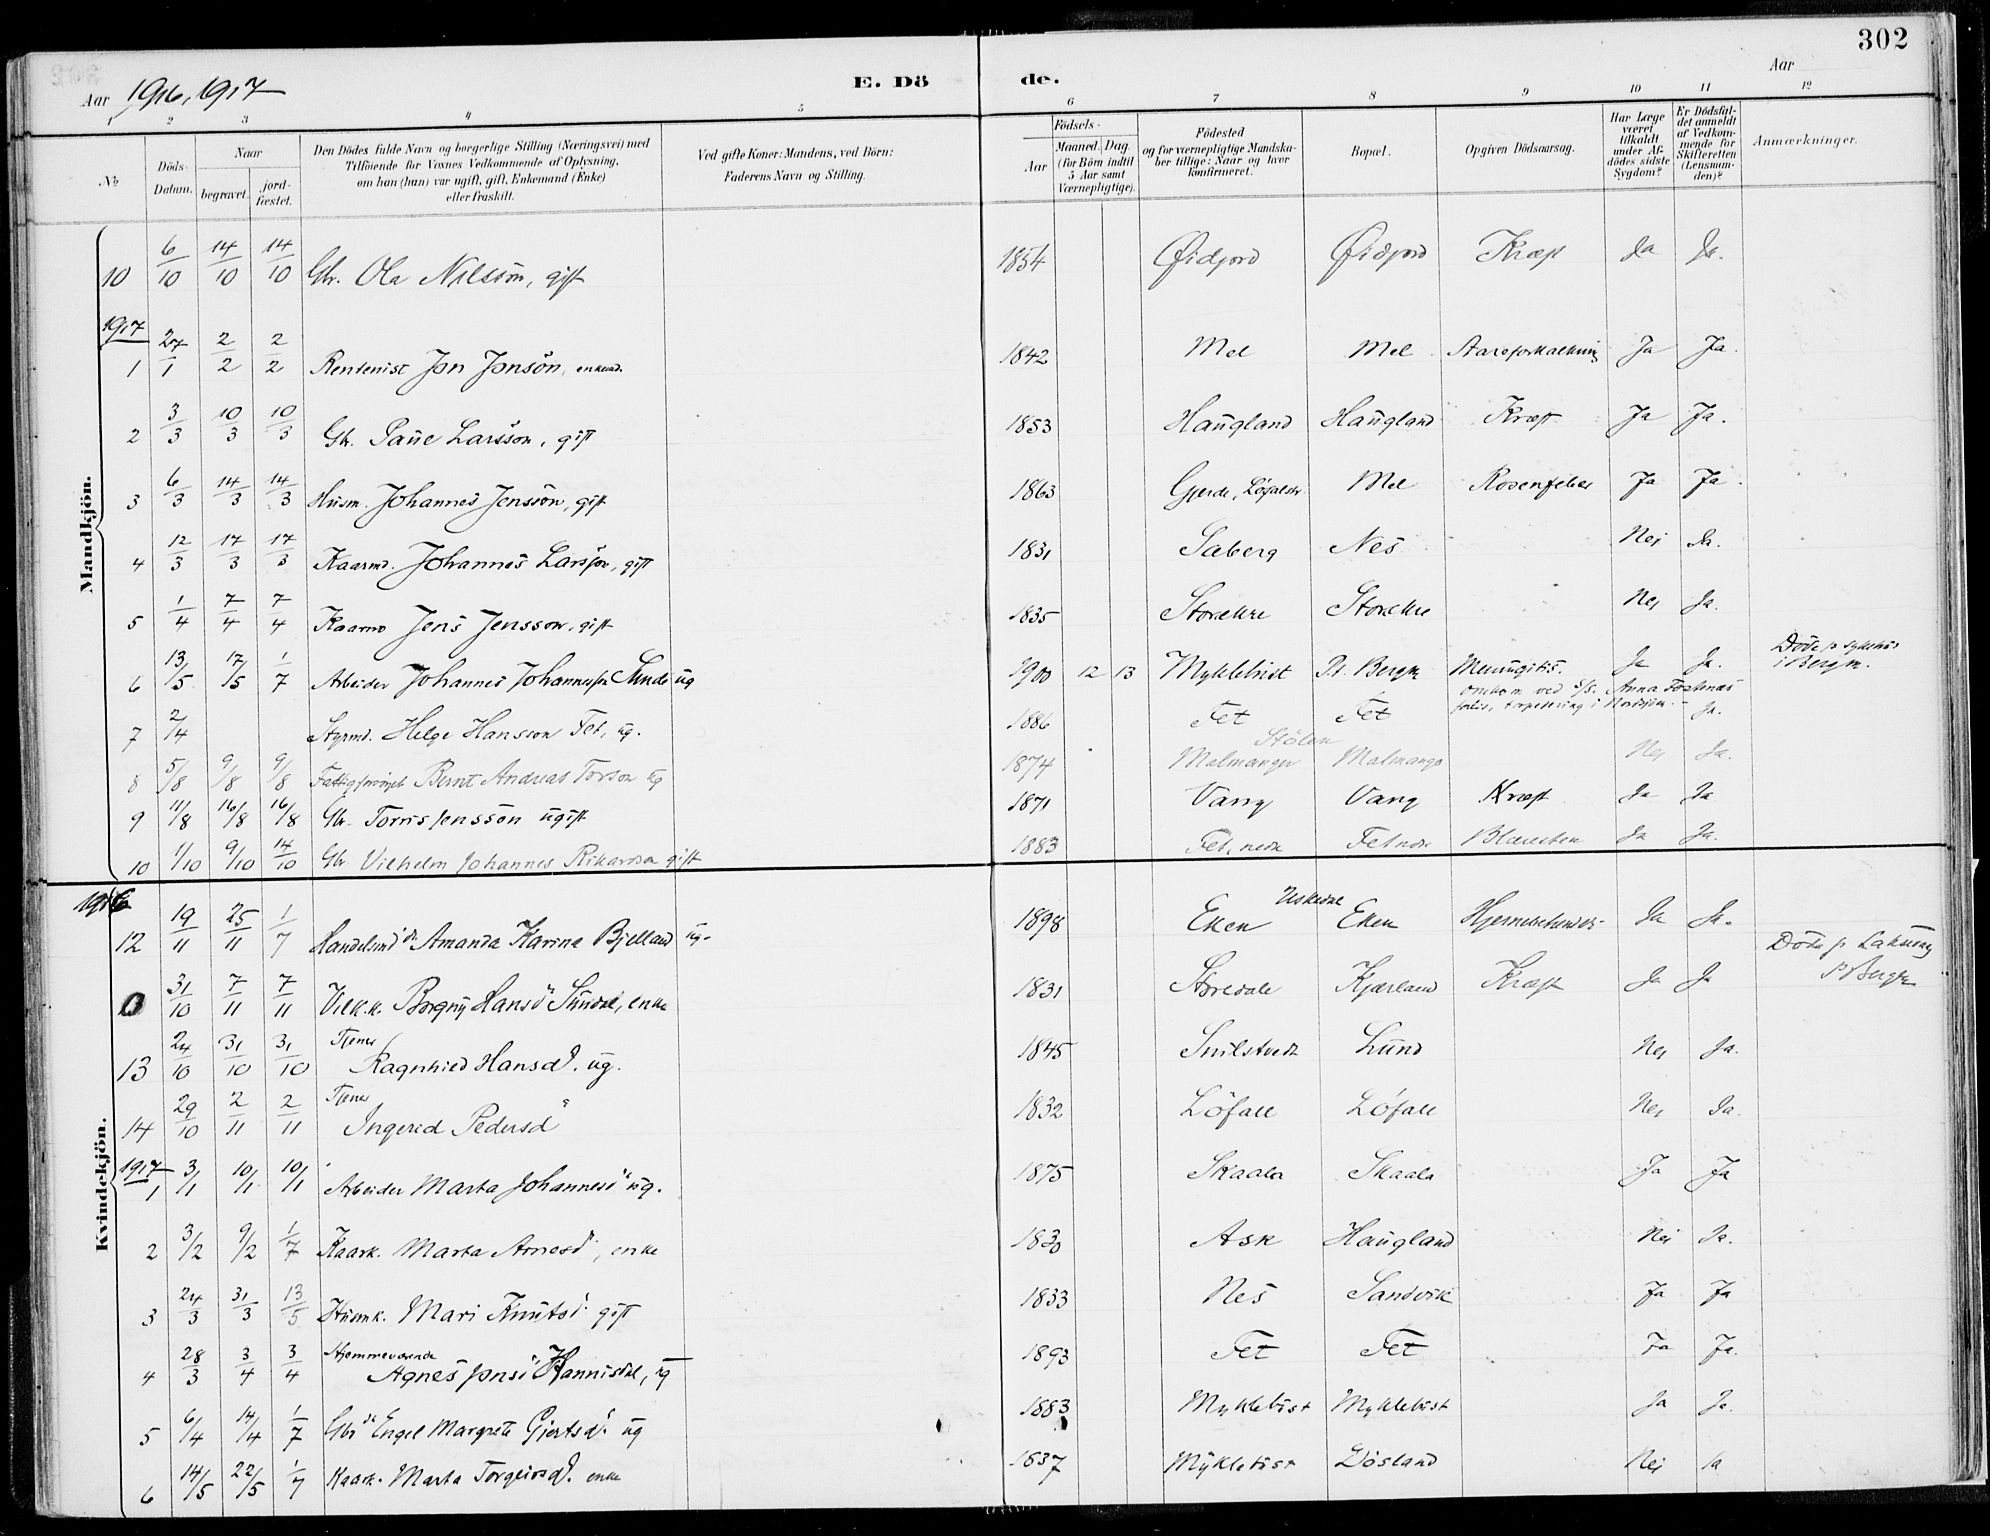 302
Aar 1916, 1917 E. Dö de. Aar
1 2 3 4 5 6 7 8 9 10 11 12
No Döds-Datum. Naar begravet. jord-fæstet. Den Dödes fulde Navn og borgerlige Stilling (Næringsvei) med Tilföiende for Voxnes Vedkommende af Oplysning, om han (hun) var ugift, gift, Enkemand (Enke) eller fraskilt. Ved gifte Koner: Mandens, ved Börn: Faderens Navn og Stilling. Födsels- Aar Maaned. Dag. (for Börn indtil 5 Aar samt Værnepligtige). Födested og for værnepligtige Mandskaber tillige: Naar og hvor konfirmeret. Bopæl. Opgiven Dödsaarsag. Har Læge været tilkaldt under Afdödes sidste Sygdom? Er Dödsfaldet anmeldt af Vedkommende for Skifteretten (Lensmanden)? Anmærkninger.
Mandkjön.
10 6/10 14/10 14/10 Gbr. Ola Nilsson, gift 1854 Øidfjord Øidfjord Kræft Ja Ja.
1917
1 27/1 2/2 2/2 Rentenist Jon Jonsön, enkem. 1842 Mel Mel Aareforkalkning Ja Ja.
2 3/3 10/3 10/3 Gbr. Paul Larsson, gift 1853 Haugland Haugland Kræft Ja Ja.
3 6/3 14/3 14/3 Husm. Johannes Jenssön, gift 1863 Gjerde, Mel Rosenfeber Ja Ja.
4 12/3 17/3 17/3 Kaarmd. Johannes Larsson, gift 1831 Sæberg Nes Nei Ja.
5 1/4 7/4 7/4 Kaarmd Jens Jensson, gift 1835 Storekre Storekre Nei Ja.
6 13/5 17/5 1/7 Arbeider Johannes Johannessen Sunde ug 1900 12 13 Myklebust Bergen Meningitis. Ja Ja. Døde p. sykehus i Bergen.
7 2/4 Styrmd. Helge Hansson Fet, ug. 1886 Fet Fet Omkom ved S/S. Anna Fostenæs forlis, torpedering i Nordsjøen. Ja.
8 5/8 9/8 9/8 Bernt Andreas Torson ug 1874 Stölen Malmanger Malmanger Nei Ja.
9 11/8 16/8 16/8 Gbr. Torris Jenssön ugift 1871 Vang Vang Kræft Ja Ja
10 1/10 9/10 14/10 Gbr Vilhelm Johannes Rikardson gift 1883 Fet, nedre Fet nedre Blæresten Ja Ja.
Kvindekjön.
1916
12 19/11 25/11 1/7 Amanda Karina Bjelland ug. 1898 Eken Uskedal Eken Ja Ja. Døde p. Laksevaag p. Bergen
31/10 7/11 7/11 Borgny Hansd. Sundal, enke 1831 Støredale Kjærland Kræft Ja Ja
13 24/10 31/10 31/10 Tjener Ragnhild Hansd. ug. 1845 Snilstveit Lund Nei Ja.
14 29/10 2/11 2/11 Tjener Ingerid Pedersd 1832 Löfall Löfall Nei Ja.
1917
1 3/1 10/1 10/1 Arbeider Marta Johannesd. ug. 1875 Skaala Skaala Ja Ja
2 3/2 9/2 1/7 Kaark. Marta Arnesd, enke 1830 Ask Haugland Nei Ja.
3 24/3 31/3 13/5 Husmk. Mari Knutsd. gift 1833 Nes Sandvik Ja Ja
4 28/3 3/4 3/4 Hjemmeværende Agnes Jonsd. Hannisdal, ug 1893 Fet Fet Ja Ja.
5 6/4 14/4 1/7 Gbr.dr. Engel Margrete Gjertsd. ug 1883 Myklebust Myklebust Ja Ja.
6 14/5 22/5 1/7 Kaark. Marta Torgeirsd. enke 1837 Myklebust Dösland Nei Ja